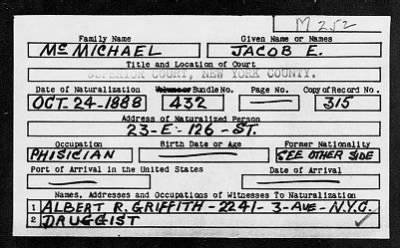 M 252
Family Name Given Name or Names
McMICHAEL JACOB E.
Title and Location of Court
SUPERIOR COURT, NEW YORK COUNTY.
Date of Naturalization Volume Bundle No. Page No. Copy of Record No.
OCT. 24-1888 432 — 315
Address of Naturalized Person
23-E-126-ST.
Occupation Birth Date or Age Former Nationality
PHISICIAN — SEE OTHER SIDE
Port of Arrival in the United States Date of Arrival
— —
Names, Addresses and Occupations of Witnesses To Naturalization
1 ALBERT R. GRIFFITH-2241-3-AVE-N.Y.C.
2 DRUGGIST